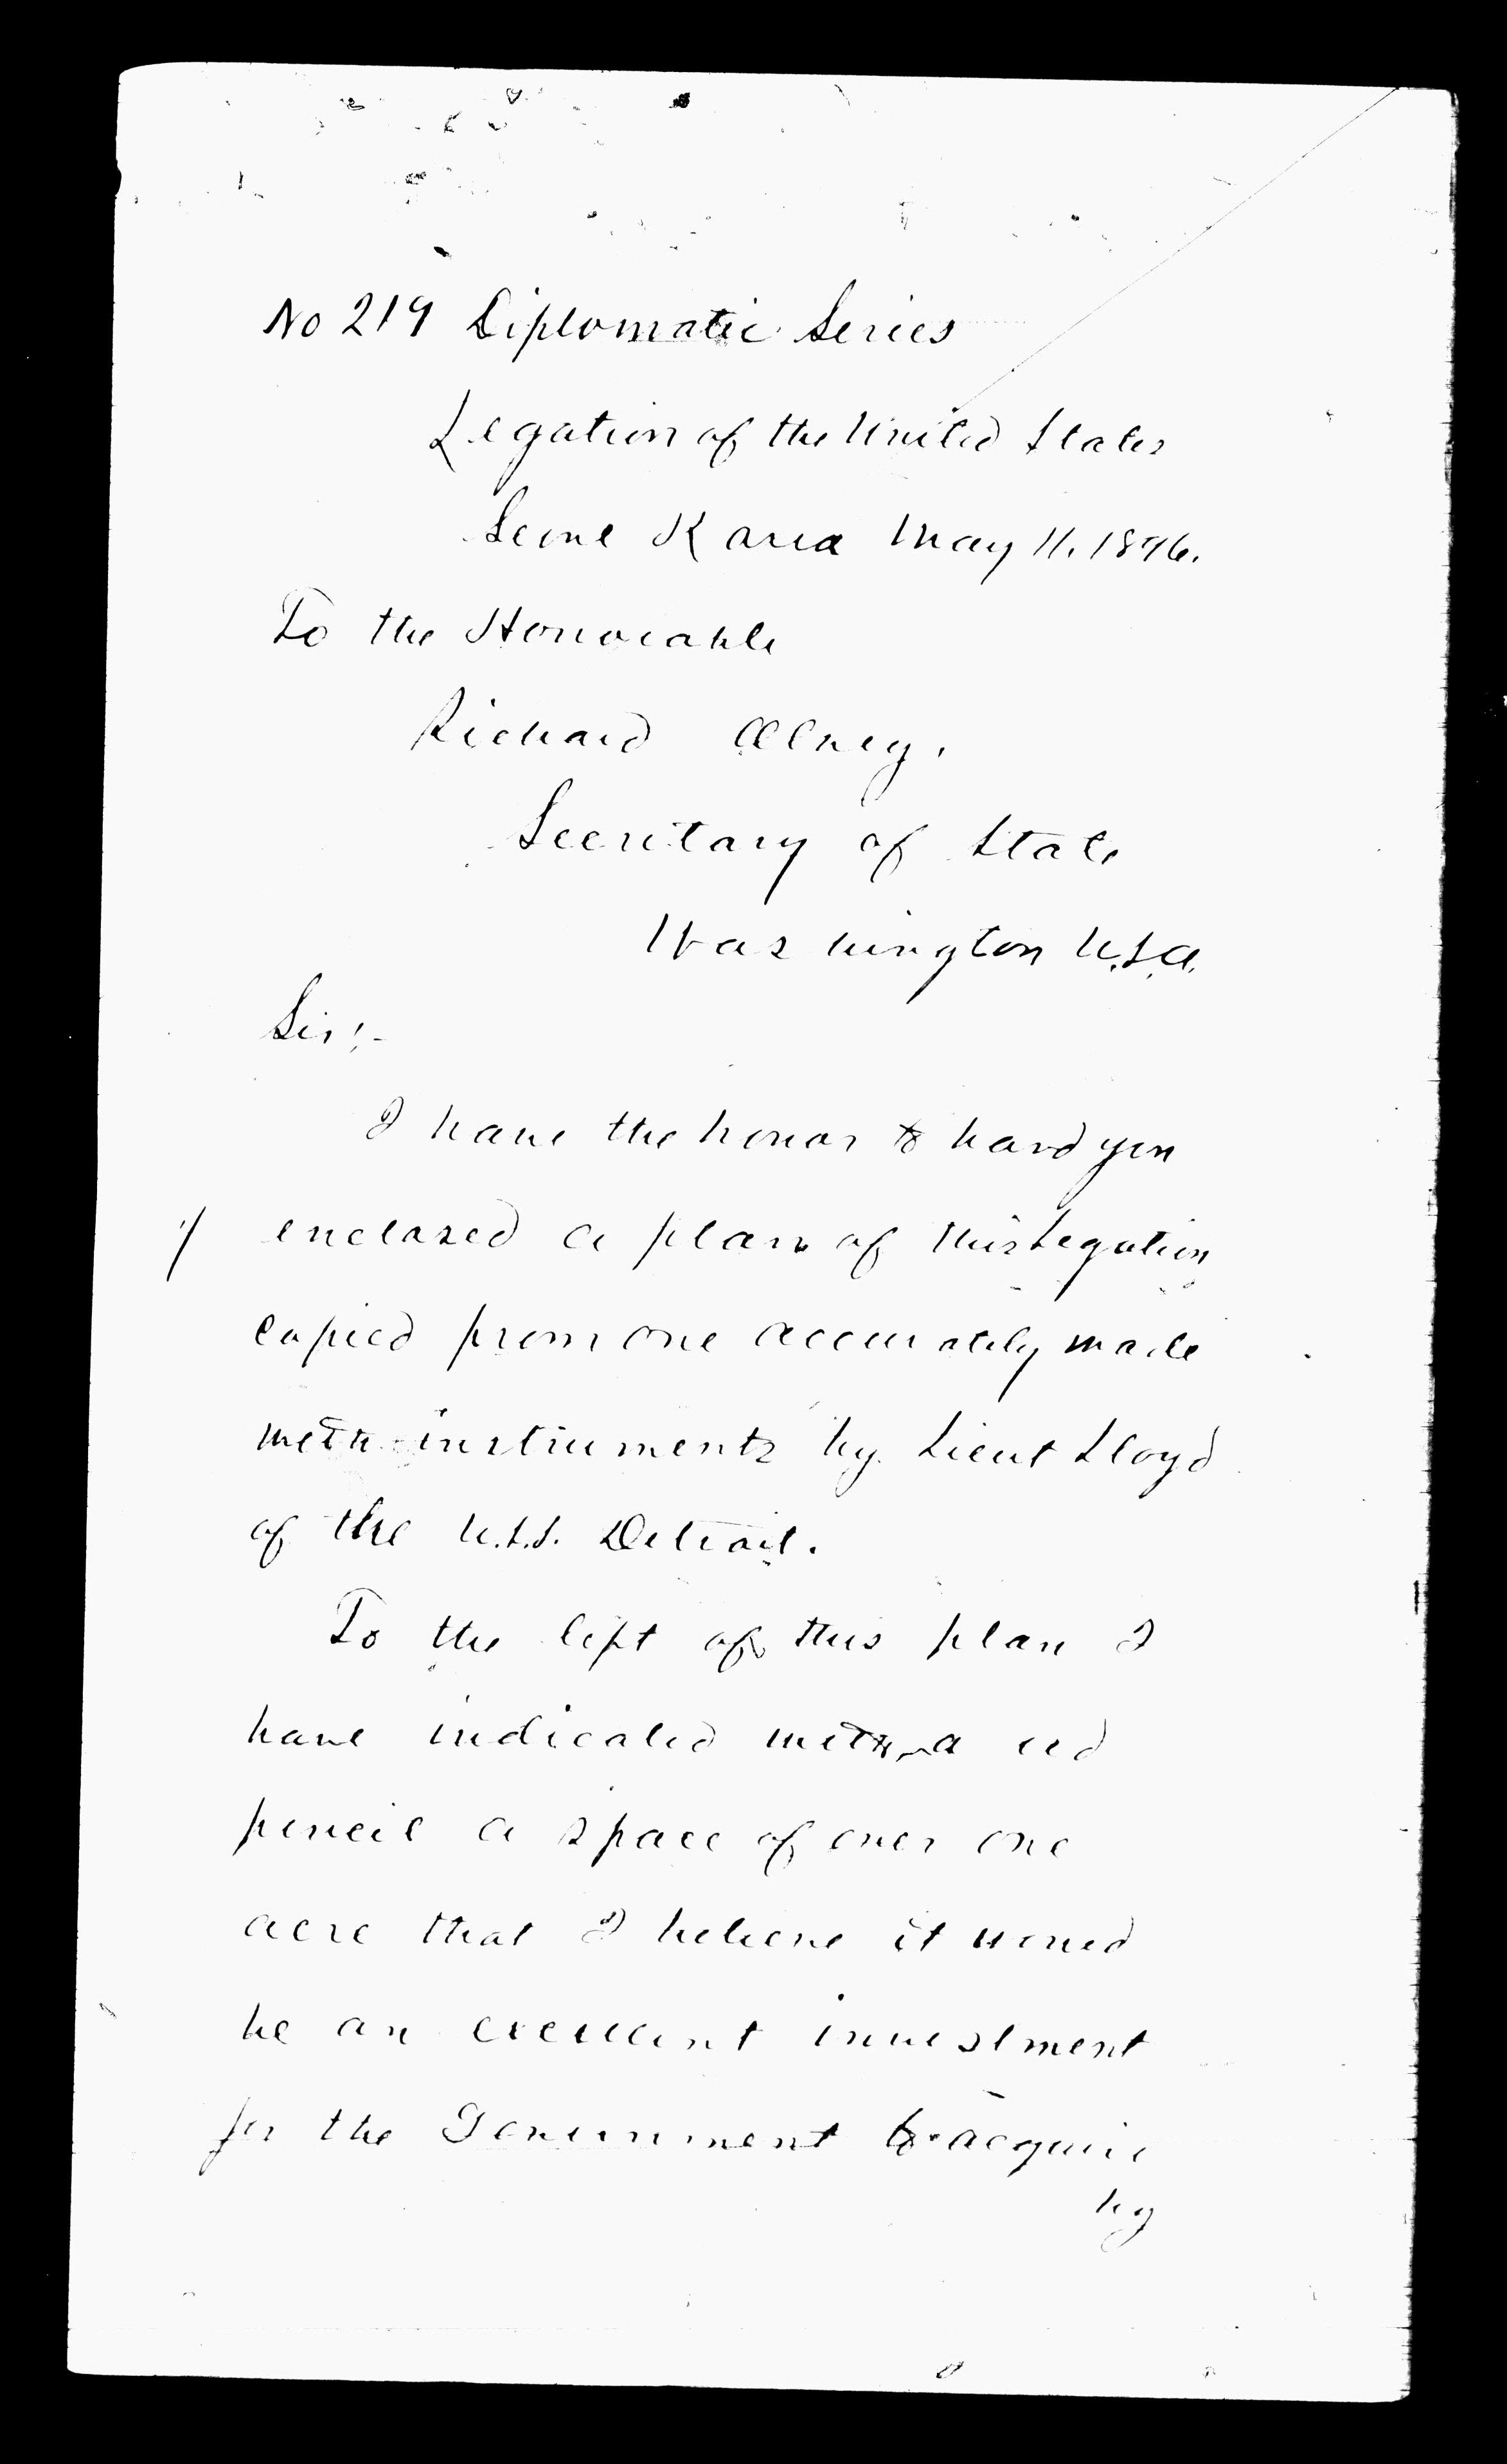 No 219 Diplomatic Series
Legation of the United States
Seoul Korea May 11. 1896.
To the Honorable
Richard Olney,
Secretary of State
Washington U.S.A.
Sir:-
I have the honor to hand you
1/ enclosed a plan of this Legation
copied from one accurately made
with instruments by Lieut Lloyd
of the U.S.S. Detroit.
To the left of this plan I
have indicated with a red
pencil a space of over one
acre that I believe it would
be an excellent investment
for the Government to acquire
by